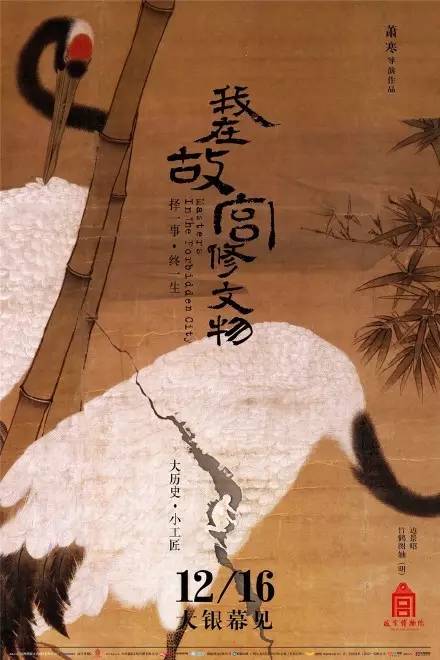 萧寒导演作品
我在故宫修文物
Masters
In The Forbidden City
择一事·终一生
大历史·小工匠
边景昭
竹鹤图轴（明）
12/16
大银幕见
故宫博物院